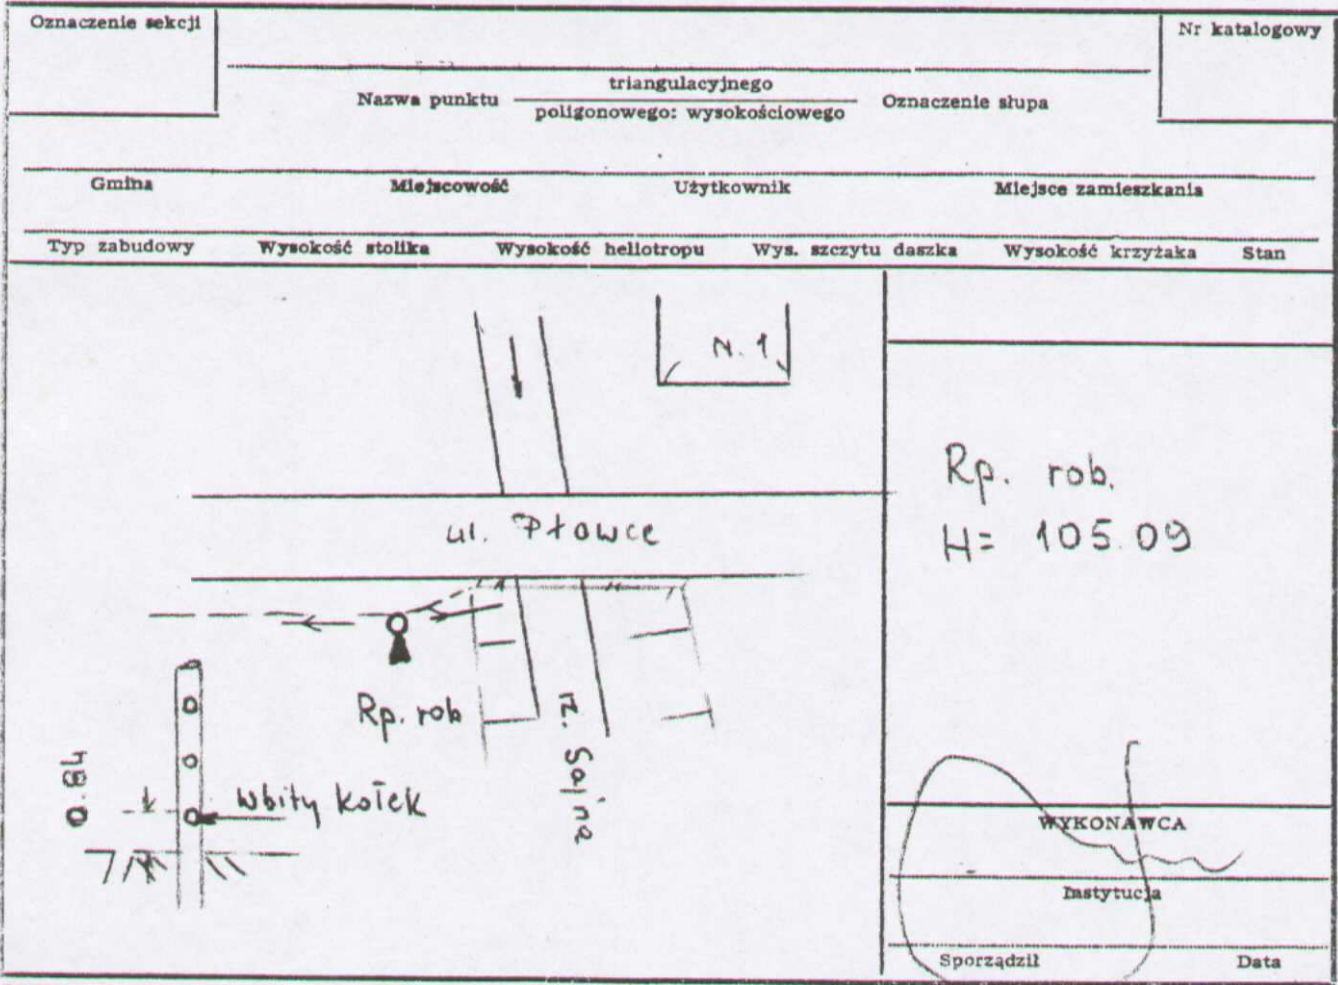 Oznaczenie sekcji
Nr katalogowy
triangulacyjnego
Nazwa punktu
poligonowego: wysokościowego
Oznaczenie słupa
Gmina Miejscowość Użytkownik Miejsce zamieszkania
Typ zabudowy Wysokość stolika Wysokość heliotropu Wys. szczytu daszka Wysokość krzyżaka Stan
N. 1
Rp. rob.
H= 105.09
ul. Płowce
Rp. rob
rz. Solna
0.84
Wbity kołek
WYKONAWCA
Instytucja
Sporządził Data